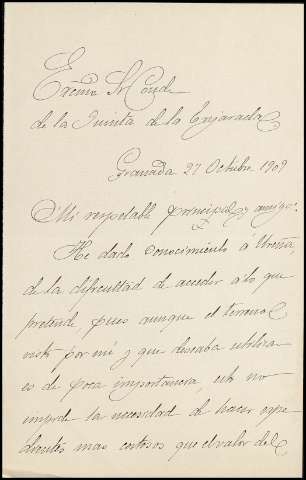 Excmo Sr Conde
de la Quinta de la Enjarada
Granada 27 Octubre 1909
Mi respetable principal y amigo:
He dado conocimiento á Ureña,
de la dificultad de acceder á lo que
pretende pues aunque el terreno
visto por mi y que deseaba utilizar
es de poca importancia, esto no
impide la necesidad de hacer expe
dientes mas costosos que el valor del